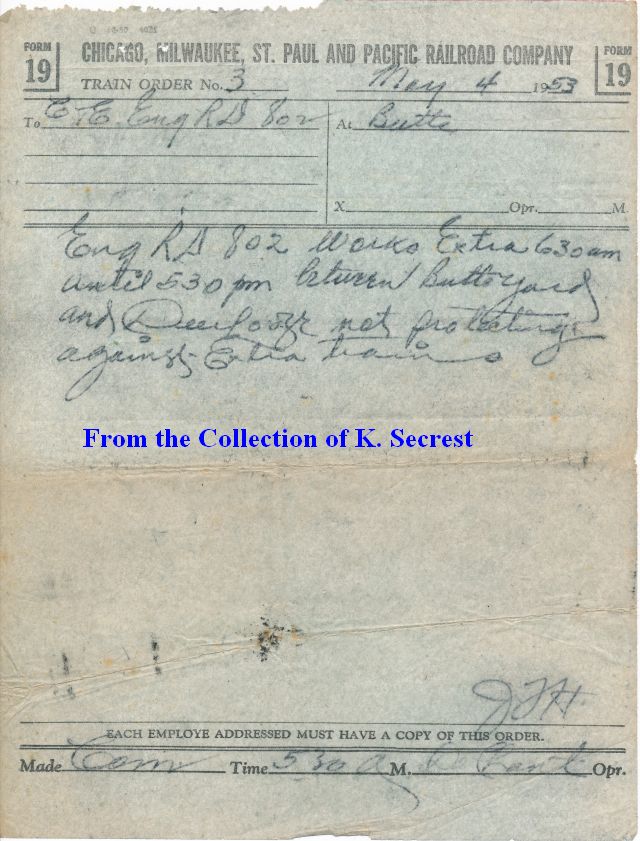 FORM 19
CHICAGO, MILWAUKEE, ST. PAUL AND PACIFIC RAILROAD COMPANY
FORM 19
TRAIN ORDER No. 3 May 4 1953
To C&E Eng RD 802 At Butte
X Opr. M.
Eng RD 802 Works Extra 630am
until 530pm between Butte yard
and Deerlodge not protecting
against Extra trains
From the Collection of K. Secrest
JFH
EACH EMPLOYE ADDRESSED MUST HAVE A COPY OF THIS ORDER.
Made Com Time 530 A M. Opr.